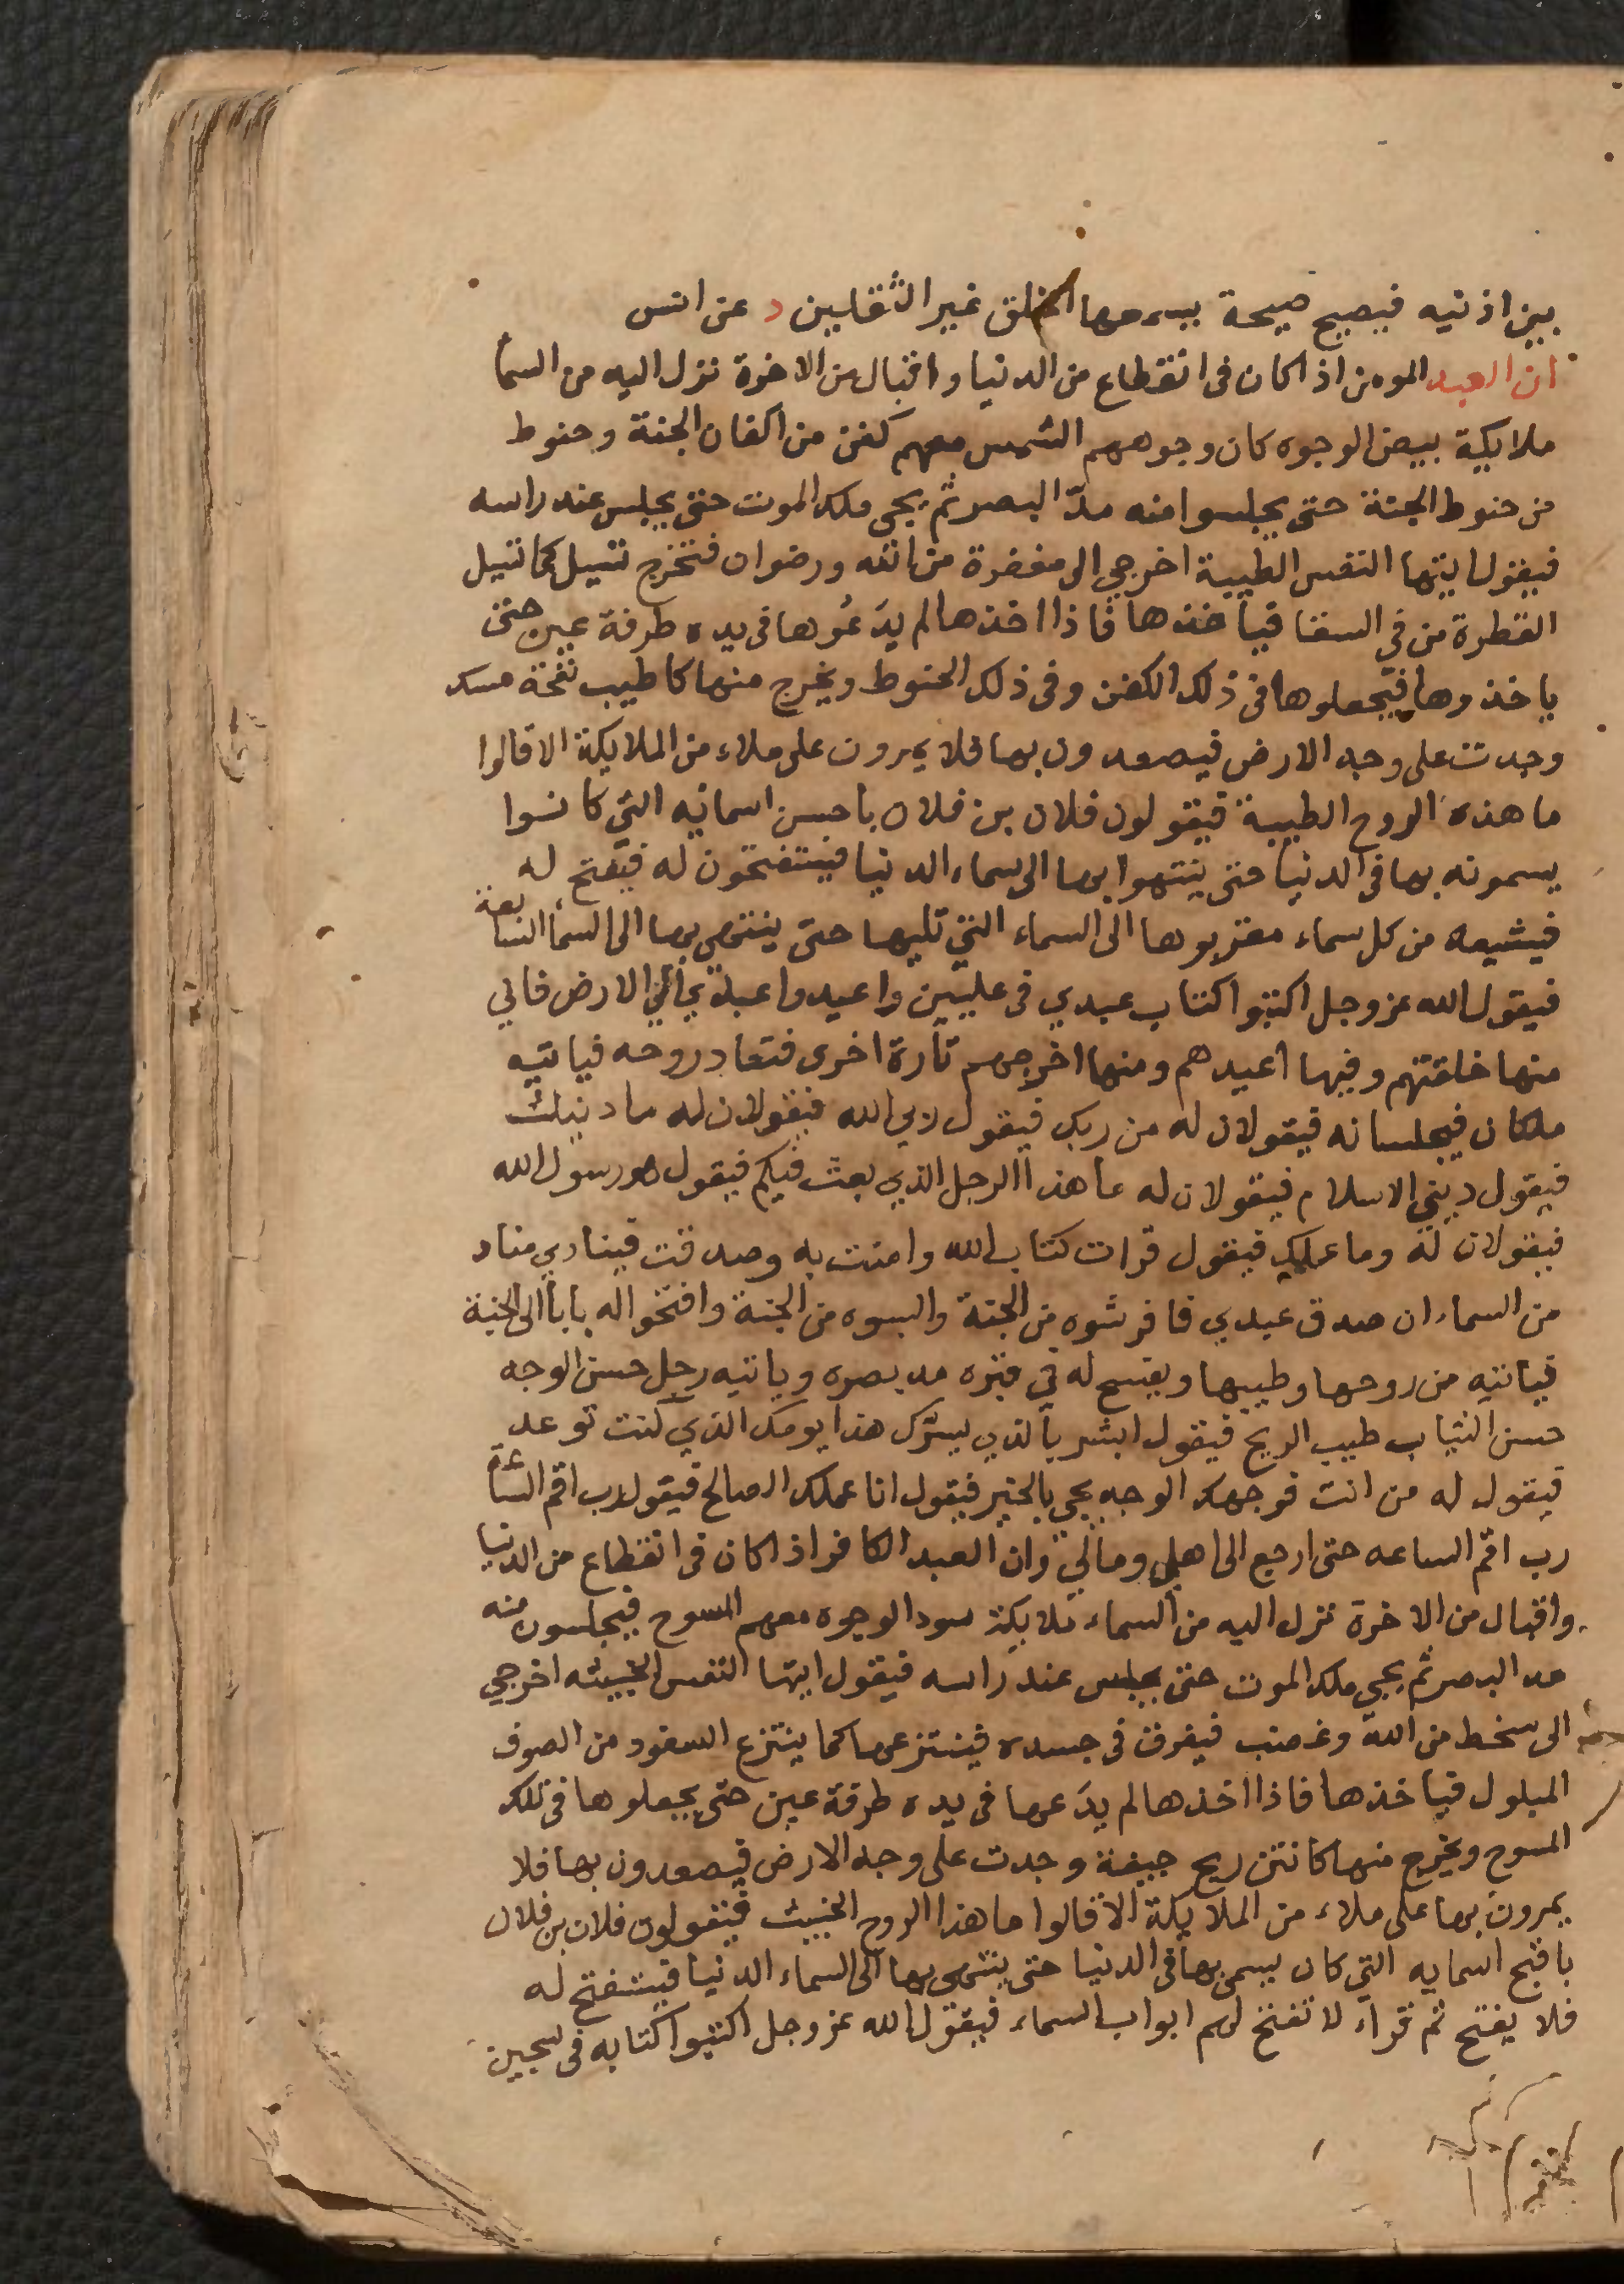 بين اذنيه فيصيح صيحة يسمعها الخلق غير الثقلين د عن انس
ان العبد المومن اذا كان فى انقطاع من الدنيا واقبال من الاخرة نزل اليه من السمآ
ملايكة بيض الوجوه كان وجوههم الشمس معهم كفن من اكفان الجنة وحنوط
من حنوط الجنة حتى يجلسوا منه مدّ البصر ثم يجى ملك الموت حتى يجلس عند راسه
فيقول ايتها النفس الطيبة اخرجي الى مغفرة من الله ورضوان فتخرج تسيل كما تسيل
القطرة من في السقا فيأخذها فاذا اخذها لم يدَعُوها فى يده طرفة عين حتى
ياخذوها فيجعلوها فى ذلك الكفن وفى ذلك الحنوط ويخرج منها كاطيب نفحة مسك
وجدت على وجه الارض فيصعدون بها فلا يمرون على ملاء من الملايكة الا قالوا
ما هذه الروح الطيبة فيقولون فلان بن فلان باحسن اسمائه التي كانوا
يسمونه بها فى الدنيا حتى ينتهوا بها الى سماء الدنيا فيستفتحون له فيفتح له
فيشيعه من كل سماء مقربوها الى السماء التي تليها حتى ينتهى بها الى السمآ السابعة
فيقول الله عز وجل اكتبوا كتاب عبدي فى عليين واعيدوا عبدي الى الارض فاني
منها خلقتهم وفيها اعيدهم ومنها اخرجهم تارة اخرى فتعاد روحه فياتيه
ملكان فيجلسانه فيقولان له من ربك فيقول ربي الله فيقولان له ما دينك
فيقول ديني الاسلام فيقولان له ما هذا الرجل الذي بعث فيكم فيقول هو رسول الله
فيقولان له وما علمك فيقول قرات كتاب الله وامنت به وصدقت فينادي مناد
من السماء ان صدق عبدي فافرشوه من الجنة والبسوه من الجنة وافتحوا له باباً الى الجنة
فياتيه من روحها وطيبها ويفسح له في قبره مد بصره وياتيه رجل حسن الوجه
حسن الثياب طيب الريح فيقول ابشر بالذي يسرّك هذا يومك الذي كنت توعد
فيقول له من انت فوجهك الوجه يجي بالخير فيقول انا عملك الصالح فيقول رب اقم الساعة
رب اقم الساعه حتى ارجع الى اهلي ومالي وان العبد الكافر اذا كان فى انقطاع من الدنيا
واقبال من الاخرة نزل اليه من السماء ملايكة سود الوجوه معهم المسوح فيجلسون منه
مد البصر ثم يجي ملك الموت حتى يجلس عند راسه فيقول ايتها النفس الخبيثه اخرجي
الى سخط من الله وغضب فيفرق فى جسده فينتزعها كما ينتزع السفود من الصوف
المبلول فياخذها فاذا اخذها لم يدَعها فى يده طرفة عين حتى يجعلوها فى تلك
المسوح ويخرج منها كانتن ريح جيفة وجدت على وجه الارض فيصعدون بها فلا
يمرون بها على ملاء من الملايكة الا قالوا ما هذا الروح الخبيث فيقولون فلان بن فلان
باقبح اسمايه التي كان يسمى بها فى الدنيا حتى ينتهى بها الى السماء الدنيا فيستفتح له
فلا يفتح ثم قراء لا تفتح لهم ابواب السماء فيقول الله عز وجل اكتبوا كتابه فى سجين